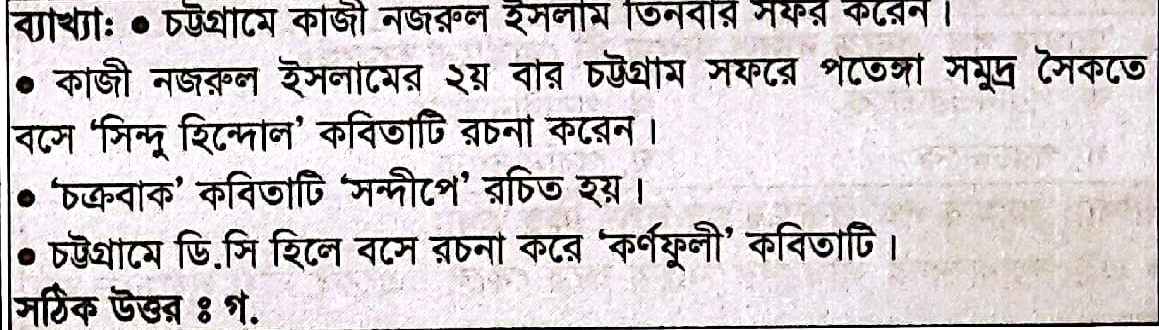 ব্যাখ্যা: ● চট্টগ্রামে কাজী নজরুল ইসলাম তিনবার সফর করেন।
● কাজী নজরুল ইসলামের ২য় বার চট্টগ্রাম সফরে পতেঙ্গা সমুদ্র সৈকতে
বসে ‘সিন্দু হিন্দোল’ কবিতাটি রচনা করেন।
● ‘চক্রবাক’ কবিতাটি ‘সন্দীপে’ রচিত হয়।
● চট্টগ্রামে ডি.সি হিলে বসে রচনা করে ‘কর্ণফুলী’ কবিতাটি।
সঠিক উত্তর ঃ গ.